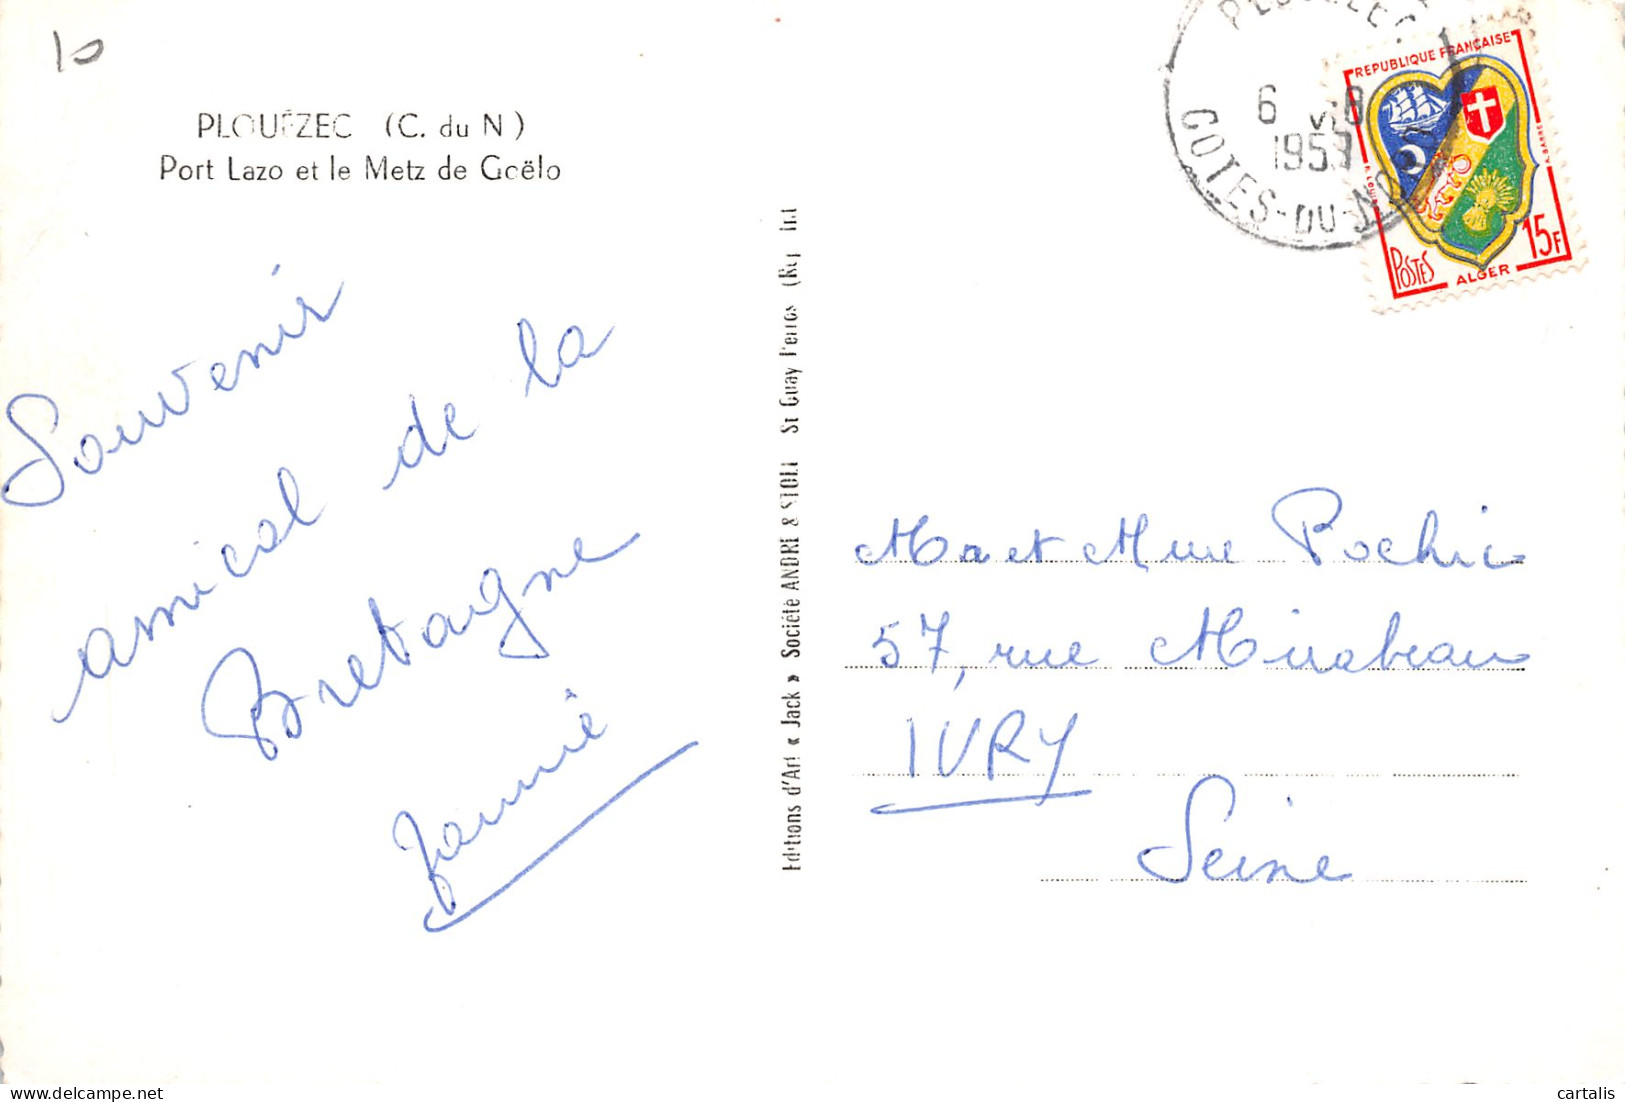 10
PLOUÉZEC (C. du N)
Port Lazo et le Metz de Goëlo
Souvenir
amical de la
Bretagne
Jannie
Editions d'Art « Jack » Société ANDRE & STOLL St Quay Perros
PLOUEZEC
6 - 8
1959
COTES-DU-NORD
REPUBLIQUE FRANÇAISE
POSTES
ALGER
15F
Mr et Mme Pochic
57, rue Mirabeau
IVRY
Seine
cartalis